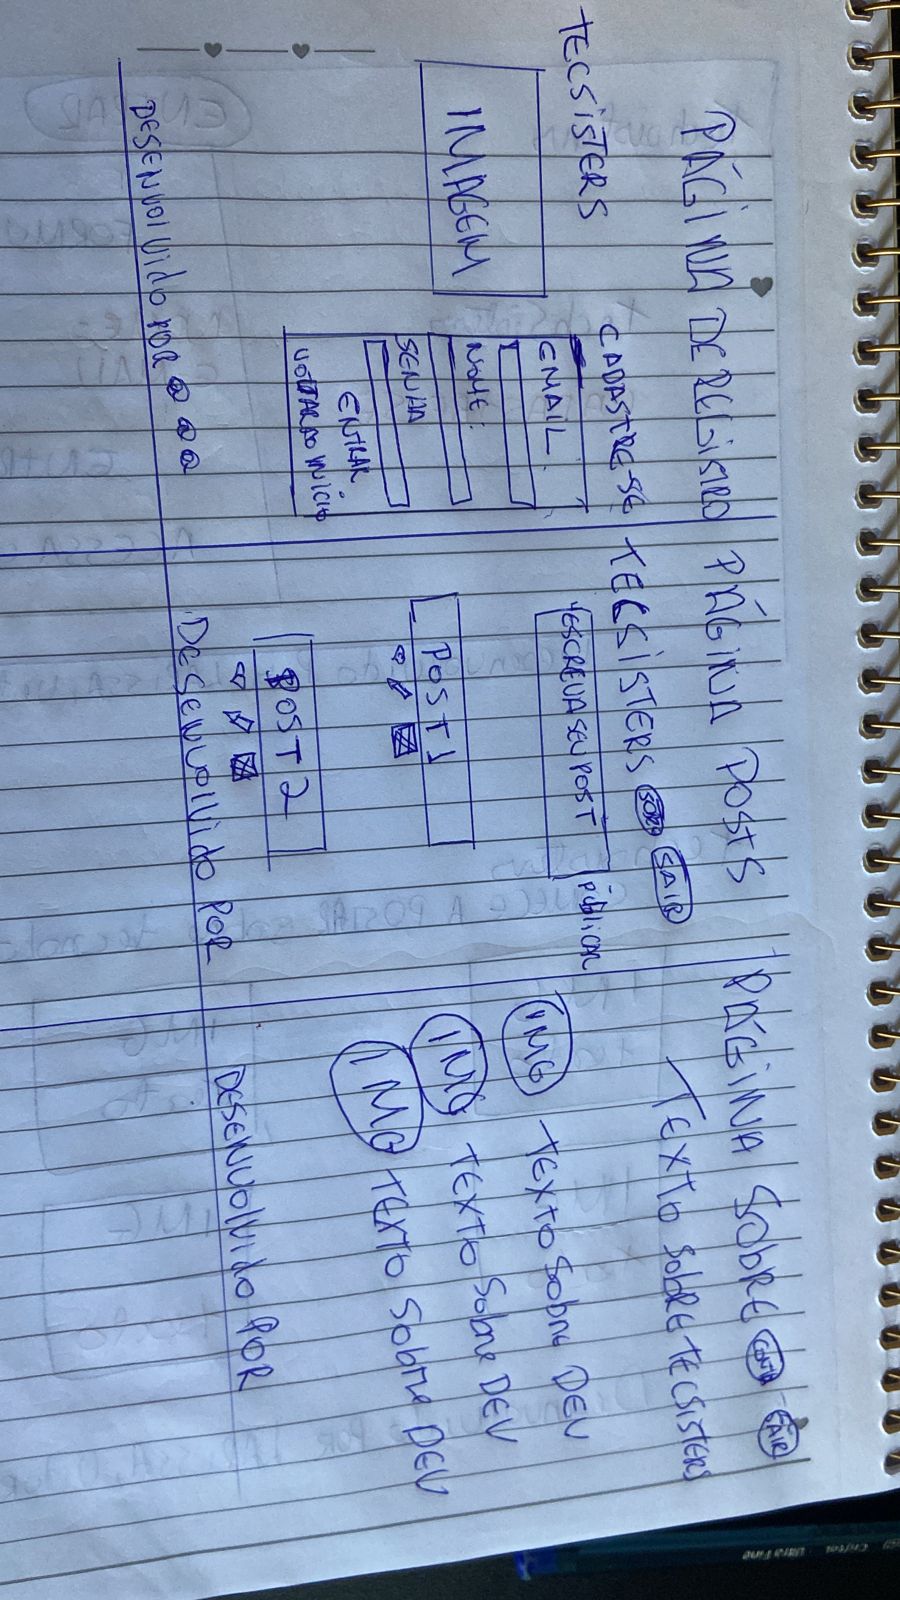 PÁGINA DE REGISTRO
TECSISTERS
IMAGEM
CADASTRE-SE
EMAIL:
NOME:
SENHA
ENTRAR
VOLTAR AO INÍCIO
DESENVOLVIDO POR
PÁGINA POSTS
TECSISTERS SAIR
ESCREVA SEU POST PUBLICAR
POST 1
POST 2
DESENVOLVIDO POR
PÁGINA SOBRE SAIR
TEXTO SOBRE TECSISTERS
IMG TEXTO SOBRE DEV
IMG TEXTO SOBRE DEV
IMG TEXTO SOBRE DEV
DESENVOLVIDO POR